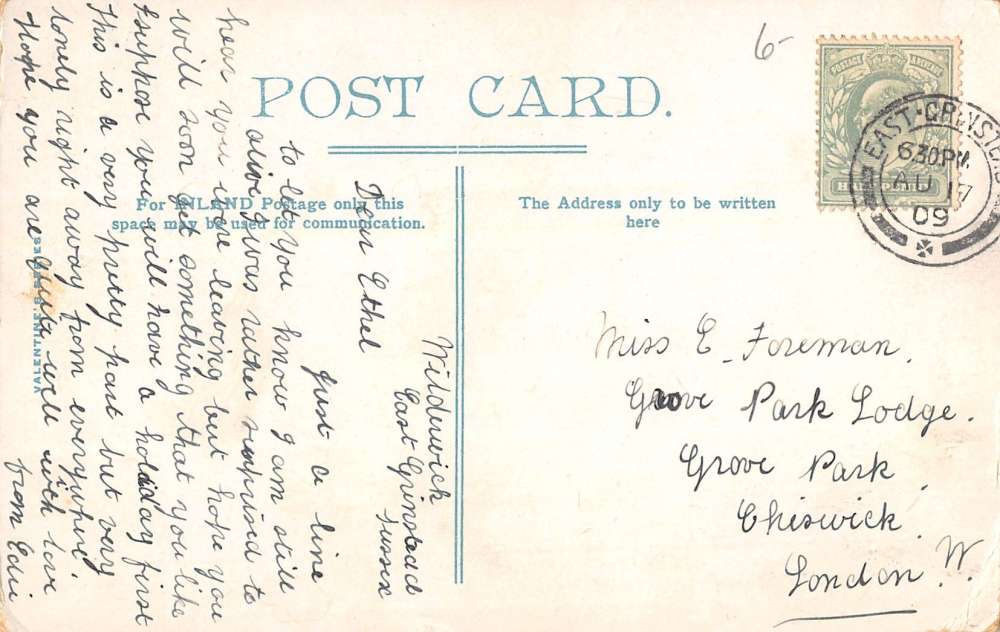 POST CARD.
For INLAND Postage only this
space may be used for communication.
The Address only to be written
here
VALENTINE'S SERIES
6-
POSTAGE
EAST GRINSTEAD
6.30 PM
AU 17
09
Wilderwick
East Grinstead
Sussex
Dear Ethel
Just a line
to let you know I am still
alive I was rather suprised to
hear you were leaving but hope you
will soon get something that you like
I suppose you will have a holiday first
this is a very pretty part but very
lonely right away from everywhere.
Hope you are quite well with love
from
Miss E. Foreman.
Grove Park Lodge.
Grove Park
Chiswick
London. W.